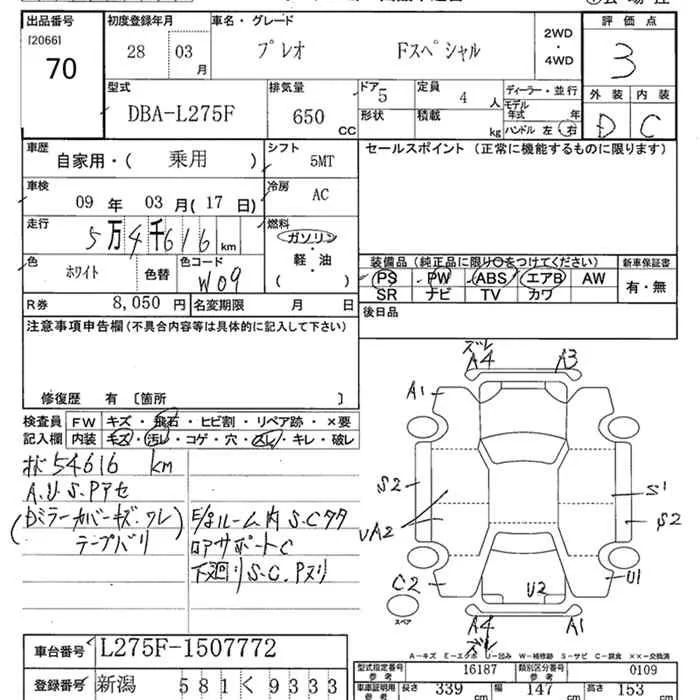 出品番号 [2066] 70
初度登録年月 28 03 月
車名・グレード プレオ Fスペシャル
2WD・4WD
評価点 3
外装 D 内装 C
型式 DBA-L275F
排気量 650 CC
ドア 5 形状
定員 4 人 積載 kg
ディーラー・並行
モデル年式 年
ハンドル 左 右
車歴 自家用・( 乗用 )
シフト 5MT
セールスポイント (正常に機能するものに限ります)
車検 09 年 03 月( 17 日)
冷房 AC
走行 5万4千616 km
燃料 ガソリン・軽・油 ( )
色 ホワイト 色替 色コード W09
装備品 (純正品に限り○をつけてください) 新車保証書
PS PW ABS エアB AW 有・無
SR ナビ TV カワ
R券 8,050 円 名変期限 月 日
後日品
注意事項申告欄 (不具合内容等は具体的に記入して下さい)
修復歴 有 〔箇所 〕
検査員記入欄 FW キズ・飛石・ヒビ割・リペア跡・×要
内装 キズ・汚レ・コゲ・穴・スレ・キレ・破レ
54616 km
A.U.S.Pアセ
(Dミラーカバーキズ.ワレ)
テープバリ
E/gルーム内 S.Cタタ
ロアサポートC
下廻リS.C.Pヌリ
ズレ
A4 A3
A1
S2 S1 S2
UA2
C2 U2 U1
スペア
A4 A1
ズレ
A-キズ E-エクボ U-凹み W-補修跡 S-サビ C-腐食 ××-交換済
車台番号 L275F-1507772
登録番号 新潟 581 く 9333
型式指定番号 参考 16187 類別区分番号 参考 0109
車庫証明用 参考 長さ 339 cm 幅 147 cm 高さ 153 cm